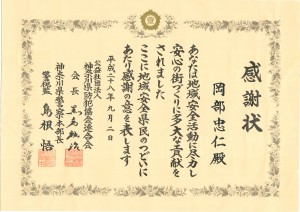 感謝状
岡部忠仁殿
あなたは地域安全活動に尽力し
安心の街づくりに多大な貢献を
されました
ここに地域安全県民のつどいに
あたり感謝の意を表します
平成二十八年九月二日
公益社団法人
神奈川県防犯協会連合会
会長
神奈川県警察本部長
警視監 島根悟